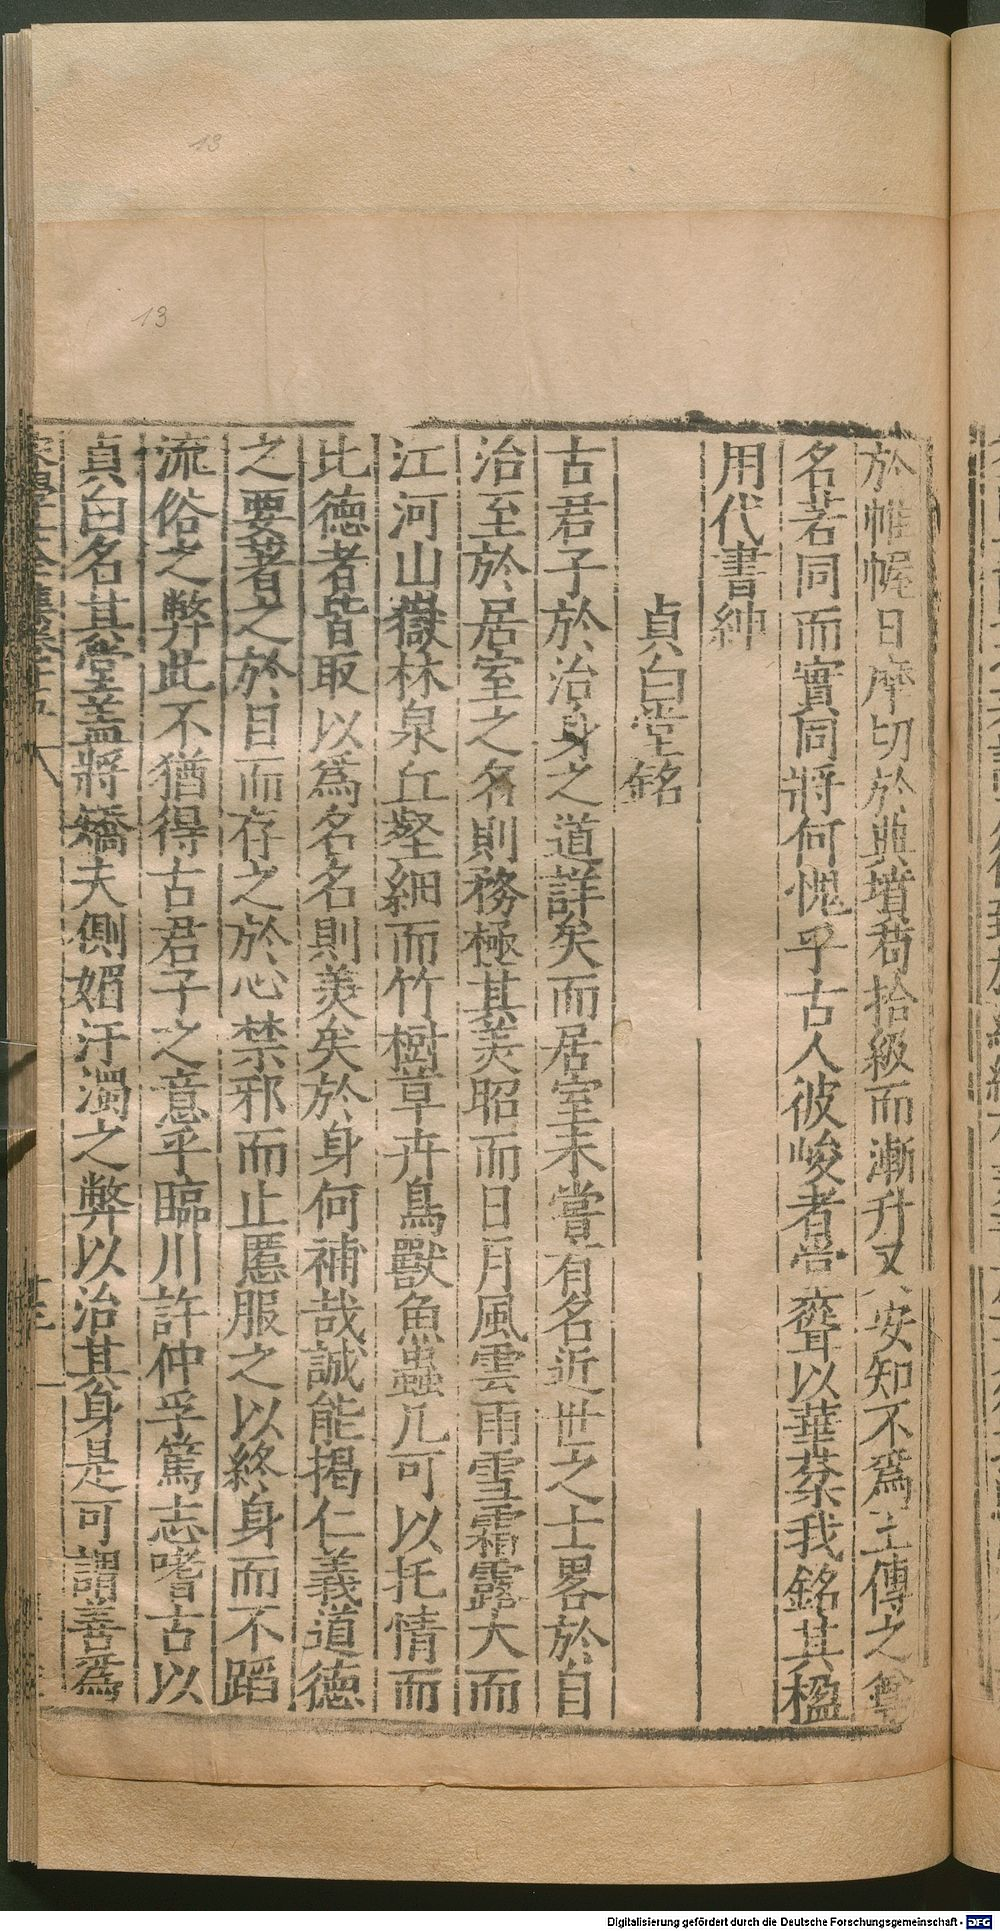 於帷幄日摩切於典墳苟拾級而漸升又安知不爲王傅之
名若同而實同將何愧乎古人彼峻者堂聳以華榱我銘其楹
用代書紳
貞白堂銘
古君子於治身之道詳矣而居室未嘗有名近世之士畧於自
治至於居室之名則務極其美昭而日月風雲雨雪霜露大而
江河山嶽林泉丘壑細而竹樹草卉鳥獸魚蟲凡可以托情而
比德者皆取以爲名名則美矣於身何補哉誠能揭仁義道德
之要著之於目而存之於心禁邪而止慝服之以終身而不蹈
流俗之弊此不猶得古君子之意乎臨川許仲孚篤志嗜古以
貞白名其堂盖將矯夫側媚汙濁之弊以治其身是可謂善爲
宋學士全集卷十五
十三
13
13
Digitalisierung gefördert durch die Deutsche Forschungsgemeinschaft - DFG